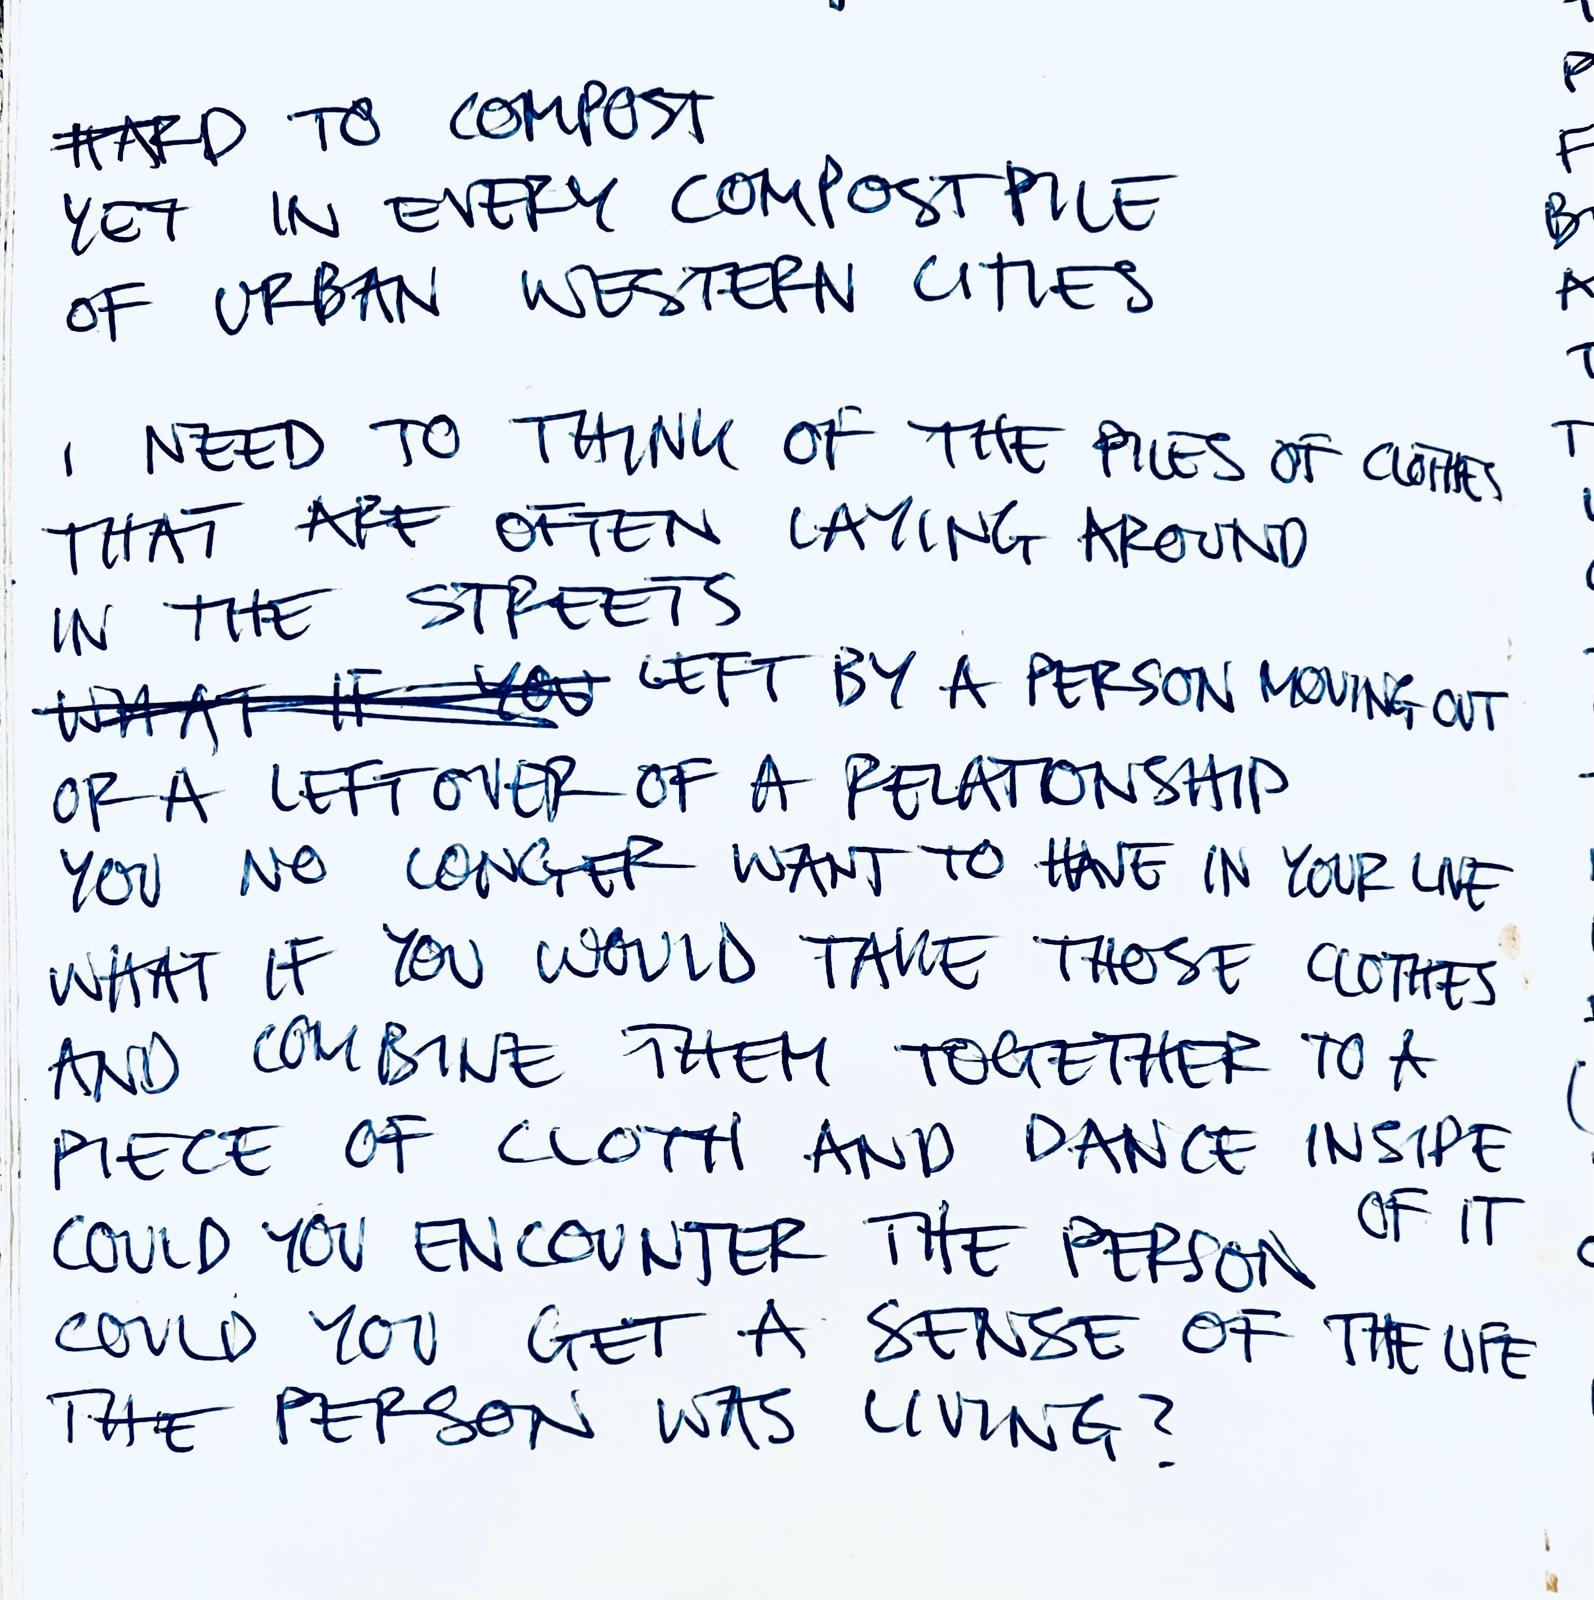 HARD TO COMPOST
YET IN EVERY COMPOSTPILE
OF URBAN WESTERN CITIES
I NEED TO THINK OF THE PILES OF CLOTHES
THAT ARE OFTEN LAYING AROUND
IN THE STREETS
WHAT IF YOU LEFT BY A PERSON MOVING OUT
OR A LEFTOVER OF A RELATIONSHIP
YOU NO LONGER WANT TO HAVE IN YOUR LIVE
WHAT IF YOU WOULD TAKE THOSE CLOTHES
AND COMBINE THEM TOGETHER TO A
PIECE OF CLOTH AND DANCE INSIDE
OF IT
COULD YOU ENCOUNTER THE PERSON
COULD YOU GET A SENSE OF THE LIFE
THE PERSON WAS LIVING?